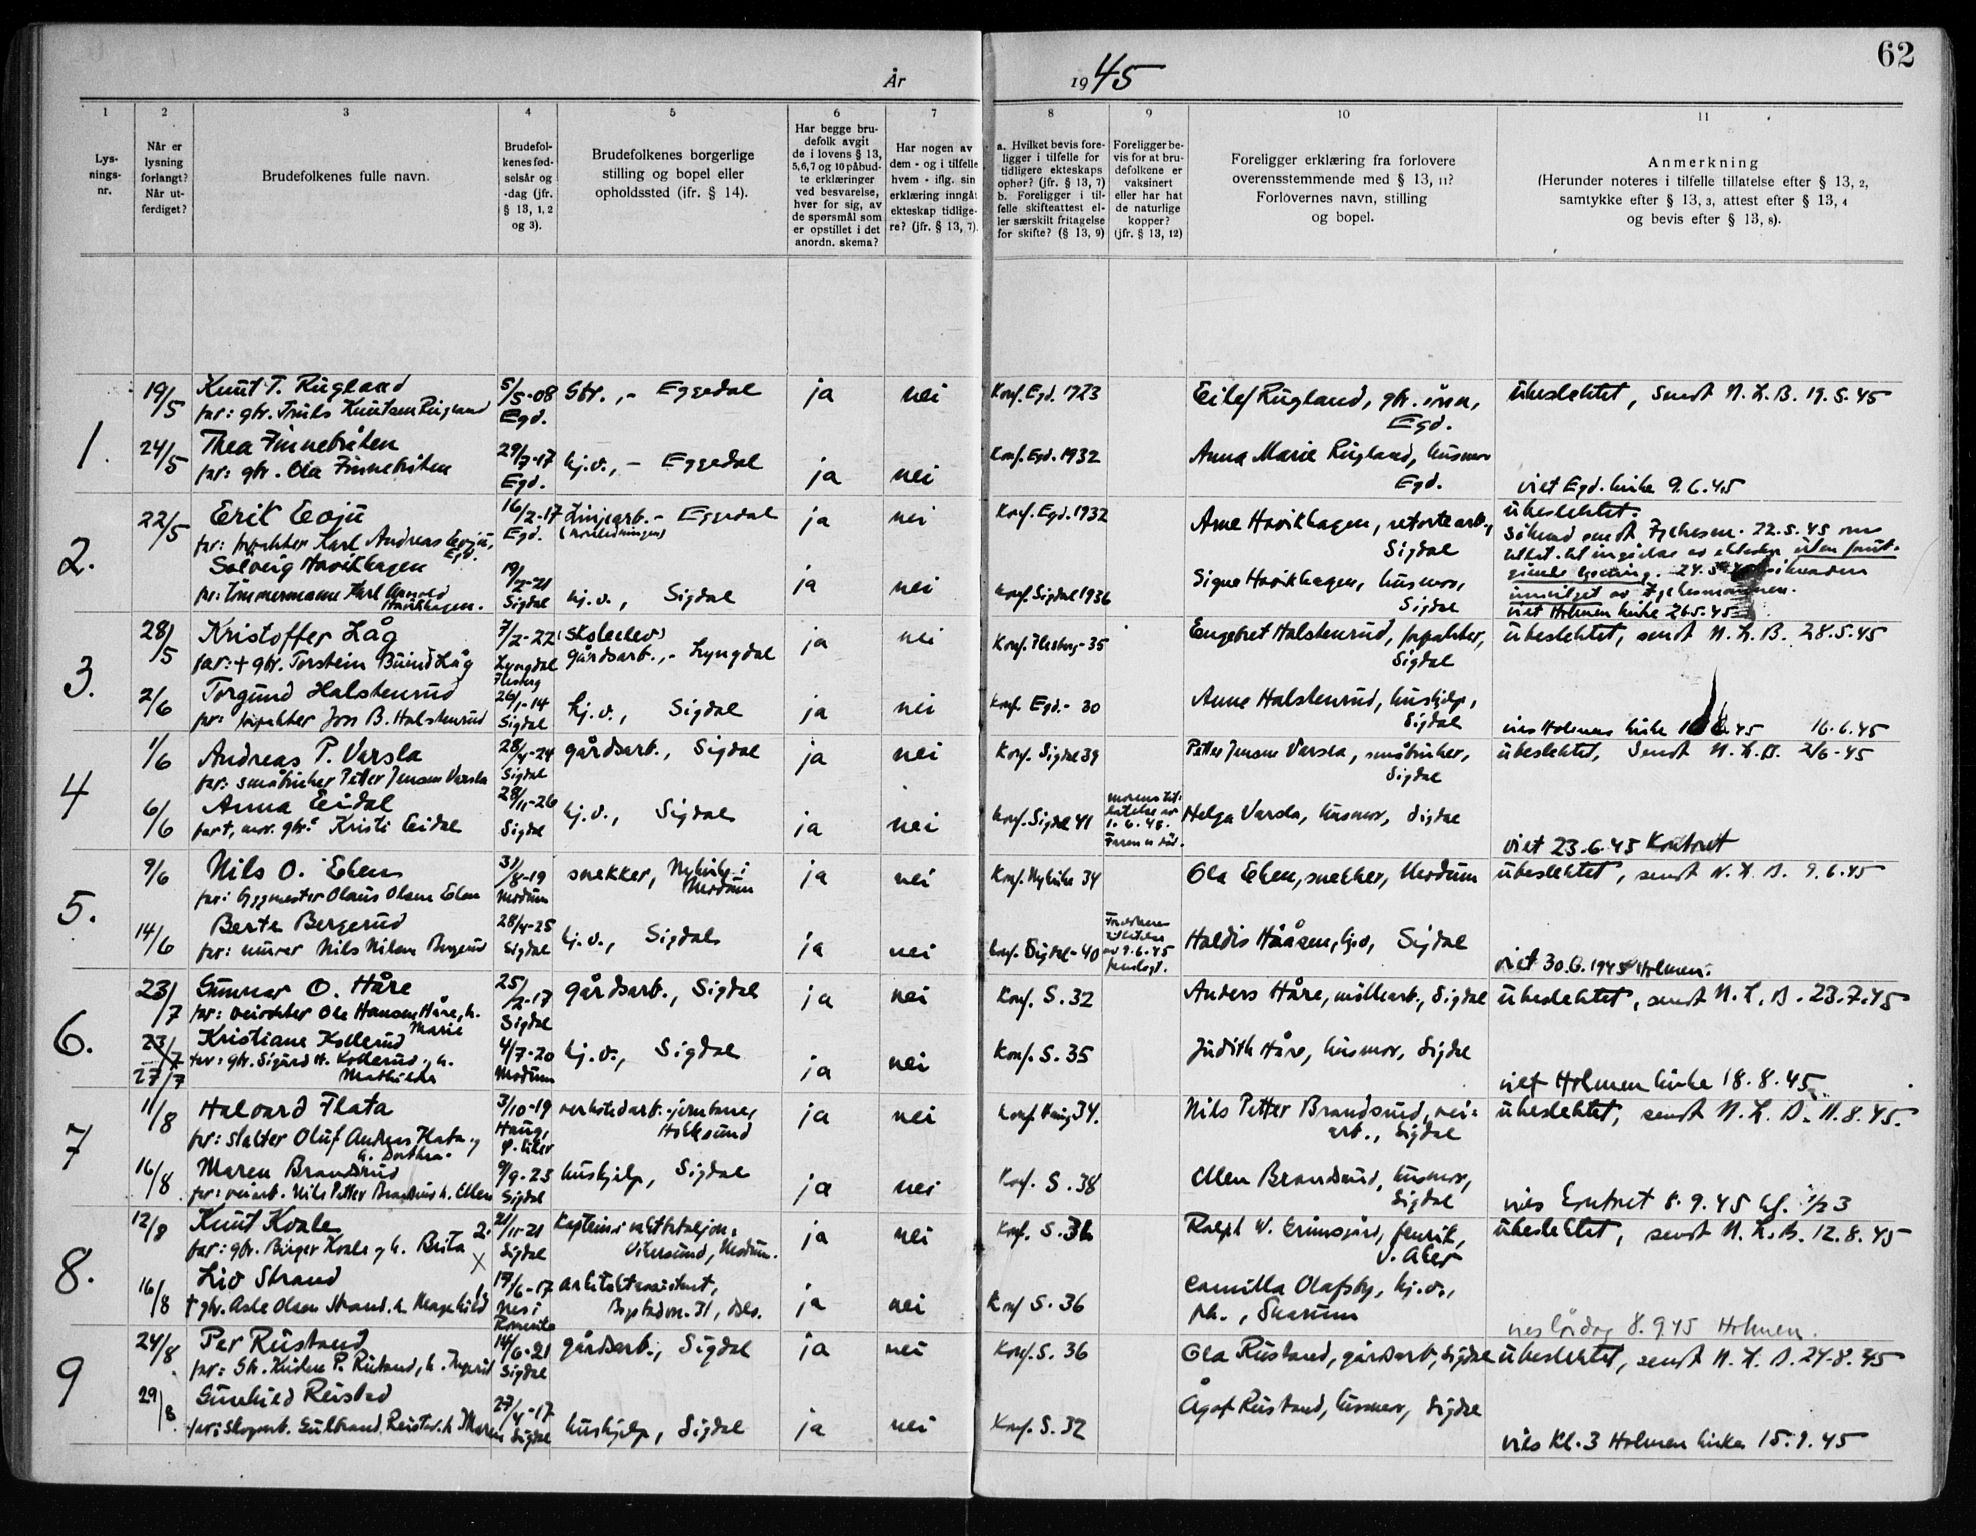 62
År 1945
1
2
3
4
5
6
7
8
9
10
11
Lys-
nings-
nr.
Når er
lysning
forlangt?
Når ut-
ferdiget?
Brudefolkenes fulle navn.
Brudefol-
kenes fød-
selsår og
-dag (jfr.
§ 13, 1, 2
og 3).
Brudefolkenes borgerlige
stilling og bopel eller
opholdssted (ifr. § 14).
Har begge bru-
defolk avgit
de i lovens § 13,
5,6,7 og 10 påbud-
te erklæringer
ved besvarelse,
hver for sig, av
de spørsmål som
er opstillet i det
anordn. skema?
Har nogen av
dem - og i tilfelle
hvem - iflg. sin
erklæring inngåt
ekteskap tidlige-
re? (jfr. § 13, 7).
a. Hvilket bevis fore-
ligger i tilfelle for
tidligere ekteskaps
ophør? (jfr. § 13, 7)
b. Foreligger i til-
felle skifteattest el-
ler særskilt fritagelse
for skifte? (§ 13, 9)
Foreligger be-
vis for at bru-
defolkene er
vaksinert
eller har hat
de naturlige
kopper?
(jfr. § 13, 12)
Foreligger erklæring fra forlovere
overensstemmende med § 13, 11?
Forlovernes navn, stilling
og bopel.
Anmerkning
(Herunder noteres i tilfelle tillatelse efter § 13, 2,
samtykke efter § 13, 3, attest efter § 13, 4
og bevis efter § 13, 8).
1.
19/5 Knut T. Rugland 5/5-08 Gbr., - Eggedal ja nei Konf. Egd. 1923 Eilef Rugland, gbr. sønn, ubeslektet, sendt N. L. B. 19.5.45
far: gbr. Truls Knutsen Rugland Egd. Egd.
24/5 Thea Finnebråten 29/7-17 hj.v., - Eggedal ja nei Konf. Egd. 1932 Anna Marie Rugland, husmor
far: gbr. Ola Finnebråten Egd. Egd. viet Egd. kirke 9.6.45
2.
22/5 Erik Eoju 16/2-17 Linjearb. - Eggedal ja nei Konf. Egd. 1932 Arne Havikhagen, retortearb., ubeslektet.
far: forpakter Karl Andreas Egd. Sigdal Søknad sendt Fylkesm. 22.5.45 om
Solveig Havikhagen 19/2-21 hj.v., Sigdal ja nei Konf. Sigdal 1936 Signe Havikhagen, husmor,
far: tømmermann Karl Havikhagen. Sigdal Sigdal
viet Holmen kirke 26.5.45
3.
28/5 Kristoffer Låg 7/2-22 (skoleelev) ja nei Konf. Flesberg-35 Engebret Halstenrud, forpakter, ubeslektet, sendt N. L. B. 28.5.45
far: + gbr. Torstein Låg Lyngdal Flesberg gårdsarb., - Lyngdal Sigdal
2/6 Torgund Halstenrud 26/1-14 hj.v., Sigdal ja nei Konf. Egd. - 30 Anne Halstenrud, hushjelp,
far: forpakter Jon B. Halstenrud Sigdal Sigdal vies Holmen kirke 16.6.45
4
1/6 Andreas P. Varsla 28/4-24 gårdsarb., Sigdal ja nei Konf. Sigdal 39 Petter Jensen Varsla, småbruker, ubeslektet, sendt N. L. B. 2/6-45
far: småbruker Petter Jensen Varsla Sigdal Sigdal
6/6 Anna Eidal 28/11-26 hj.v., Sigdal ja nei Konf. Sigdal 41 morens til-
latelse av
1.6.45.
Faren er død. Helga Varsla, husmor, Sigdal
far +, mor. gbr. Kristi Eidal Sigdal viet 23.6.45 Kontoret
5.
9/6 Nils O. Eken 31/8-19 snekker, Nykirke i Modum ja nei Konf. Nykirke 34 Ola Eken, snekker, Modum ubeslektet, sendt N. L. B. 9.6.45
far: byggmester Olaus Olsen Eken Modum
14/6 Berte Bergerud 28/4-25 hj.v., Sigdal ja nei Konf. Sigdal - 40 Foreldrenes
tillatelse
av 9.6.45
fremlagt. Haldis Hååsen, hj.v., Sigdal
far: murer Nils Nilsen Bergerud Sigdal viet 30.6.1945 Holmen.
6.
23/7 Gunnar O. Håre 25/2-17 gårdsarb., Sigdal ja nei Konf. S. 32 Anders Håre, møllearb., Sigdal ubeslektet, sendt N. L. B. 23.7.45
far: veivokter Ole Hansen Håre, h. Marie Sigdal
23/7 Kristiane Kollerud 4/7-20 hj.v., Sigdal ja nei Konf. S. 35 Judith Håre, husmor, Sigdal
27/7 far: gbr. Sigurd H. Kollerud, h. Mathilde Modum viet Holmen kirke 18.8.45
7
11/8 Halvard Flata 3/10-19 verkstedarb. jernbane, Hokksund ja nei Konf. Haug 34. Nils Petter Brandsrud, vei- ubeslektet, sendt N. L. B. 11.8.45.
far: slakter Oluf Andres Flata og h. Dorthea Haug, Ø. Eiker arb., Sigdal
16/8 Maren Brandsrud 9/9-23 hushjelp, Sigdal ja nei Konf. S. 38 Ellen Brandsrud, husmor,
far: veiarb. Nils Petter Brandsrud h. Ellen Sigdal Sigdal vies Kontoret 8.9.45 kl. 1/2 3
8.
12/8 Knut Kvale 21/11-21 Kaptein i vaktbataljon, ja nei Konf. S. 36 Ralph W. Grimsgård, fenrik, ubeslektet, sendt N. L. B. 12.8.45
far: gbr. Birger Kvale og h. Berta Sigdal Vikersund, Modum. V. Aker
16/8 Liv Strand 19/6-17 arkitektassistent, ja nei Konf S. 36 Camilla Olafsby, hj.v.,
+ gbr. Asle Olsen Strand, h. Magnhild Nes i Romerike Bogstadvn. 31, Oslo. Snarum vies lördag 8.9.45 Holmen.
9
24/8 Per Rustand 14/6-21 gårdsarb., Sigdal ja nei Konf. S. 36 Ola Rustand, gårdsarb., Sigdal ubeslektet, sendt N. L. B. 24.8.45
far: Gbr. Kristen P. Rustand, h. Ingerid Sigdal
29/8. Gunhild Reistad 27/4-17 hushjelp, Sigdal ja nei Konf. S. 32 Ågot Rustand, husmor, Sigdal
far: skogarb. Gulbrand Reistad. h. Maren Sigdal vies kl. 3 Holmen kirke 15.9.45